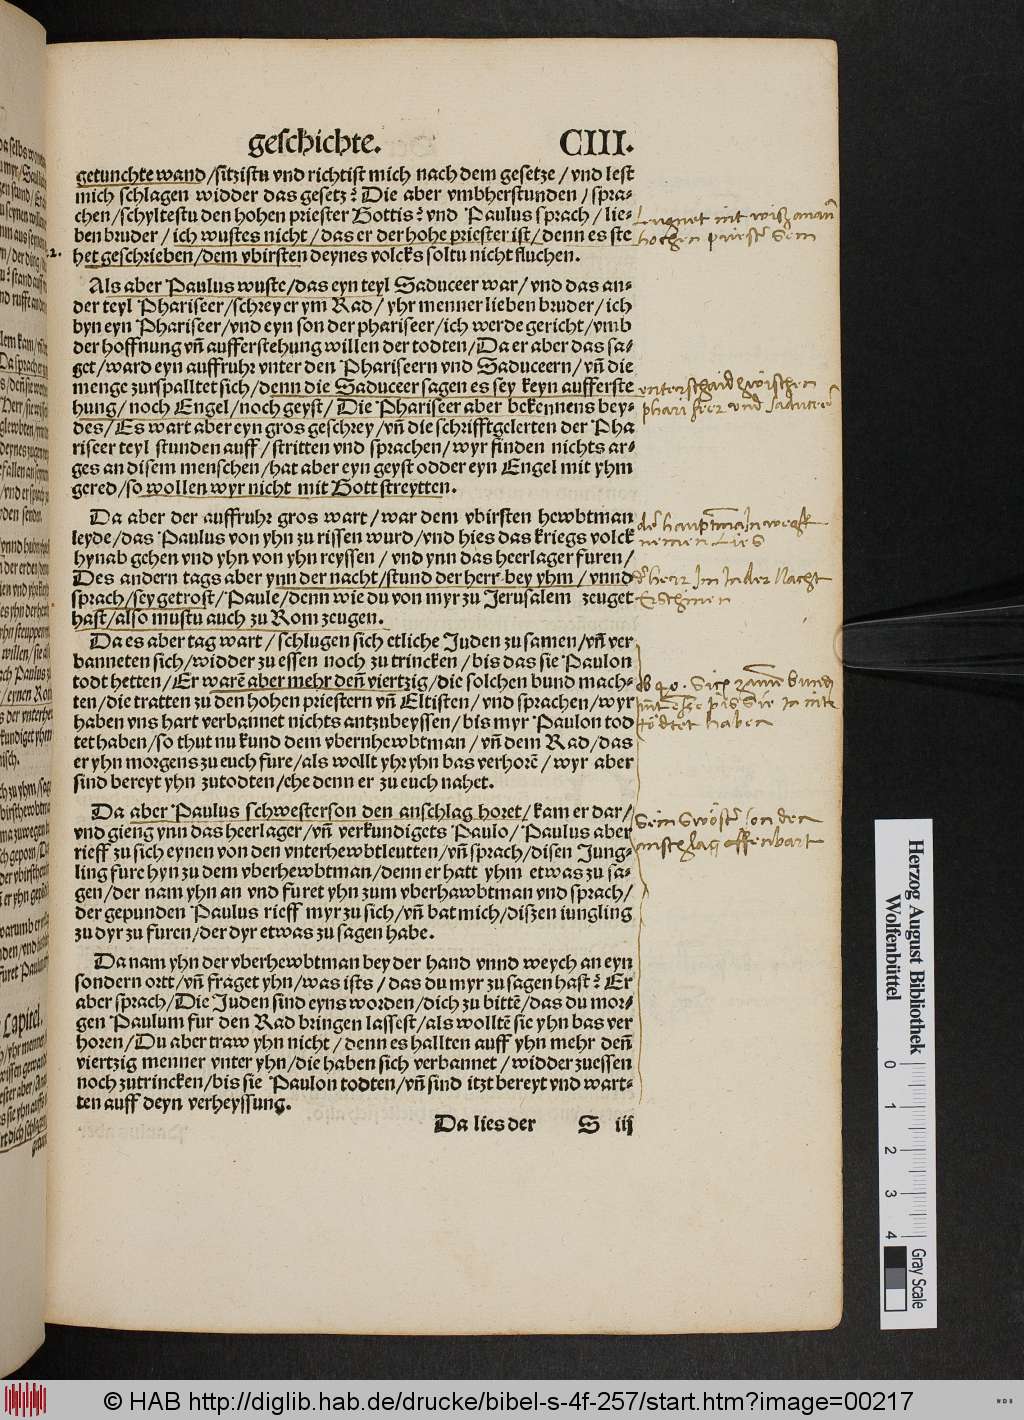 geschichte. CIII.
getunchte wand/sitzistu vnd richtist mich nach dem gesetze/vnd lest
mich schlagen widder das gesetz? Die aber vmbherstunden/spra-
chen/schyltestu den hohen priester Gottis? vnd Paulus sprach/lie-
ben bruder/ich wustes nicht/das er der hohe priester ist/denn es ste
het geschrieben/dem vbirsten deynes volcks soltu nicht fluchen.
Als aber Paulus wuste/das eyn teyl Saduceer war/vnd das an-
der teyl Phariseer/schrey er ym Rad/yhr menner lieben bruder/ich
byn eyn Phariseer/vnd eyn son der phariseer/ich werde gericht/vmb
der hoffnung vñ aufferstehung willen der todten/Da er aber das sa-
get/ward eyn auffruhr vnter den Phariseern vnd Saduceern/vñ die
menge zurspalltet sich/denn die Saduceer sagen es sey keyn aufferste
hung/noch Engel/noch geyst/Die Phariseer aber bekennens bey-
des/Es wart aber eyn gros geschrey/vñ die schrifftgelerten der Pha
riseer teyl stunden auff/stritten vnd sprachen/wyr finden nichts ar-
ges an disem menschen/hat aber eyn geyst odder eyn Engel mit yhm
gered/so wollen wyr nicht mit Gott streytten.
Da aber der auffruhr gros wart/war dem vbirsten hewbtman
leyde/das Paulus von yhn zu rissen wurd/vnd hies das kriegs volck
hynab gehen vnd yhn von yhn reyssen/vnd ynn das heerlager furen/
Des andern tags aber ynn der nacht/stund der herr bey yhm/vnnd
sprach/sey getrost/Paule/denn wie du von myr zu Jerusalem zeuget
hast/also mustu auch zu Rom zeugen.
Da es aber tag wart/schlugen sich etliche Juden zu samen/vñ ver
banneten sich/widder zu essen noch zu trincken/bis das sie Paulon
todt hetten/Er warẽ aber mehr deñ viertzig/die solchen bund mach-
ten/die tratten zu den hohen priestern vñ Eltisten/vnd sprachen/wyr
haben vns hart verbannet nichts antzubeyssen/bis myr Paulon tod
tet haben/so thut nu kund dem vbernhewbtman/vñ dem Rad/das
er yhn morgens zu euch fure/als wollt yhr yhn bas verhorẽ/wyr aber
sind bereyt yhn zutodten/ehe denn er zu euch nahet.
Da aber Paulus schwesterson den anschlag horet/kam er dar/
vnd gieng ynn das heerlager/vñ verkundigets Paulo/Paulus aber
rieff zu sich eynen von den vnterhewbtleutten/vñ sprach/disen Jung-
ling fure hyn zu dem vberhewbtman/denn er hatt yhm etwas zu sa-
gen/der nam yhn an vnd furet yhn zum vberhawbtman vnd sprach/
der gepunden Paulus rieff myr zu sich/vñ bat mich/diszen iungling
zu dyr zu furen/der dyr etwas zu sagen habe.
Da nam yhn der vberhewbtman bey der hand vnnd weych an eyn
sondern ortt/vñ fraget yhn/was ists/das du myr zu sagen hast? Er
aber sprach/Die Juden sind eyns worden/dich zu bittẽ/das du mor-
gen Paulum fur den Rad bringen lassest/als wolltẽ sie yhn bas ver
horen/Du aber traw yhn nicht/denn es hallten auff yhn mehr deñ
viertzig menner vnter yhn/die haben sich verbannet/widder zuessen
noch zutrincken/bis sie Paulon todten/vñ sind itzt bereyt vnd wart-
ten auff deyn verheyssung.
Da lies der S iij
enterschaid zwischen
der hauptman
nemen lies
herr in der Nacht
Erschinen
haben
offenbart
Herzog August Bibliothek
Wolfenbüttel
0 1 2 3 4
Gray Scale
© HAB http://diglib.hab.de/drucke/bibel-s-4f-257/start.htm?image=00217